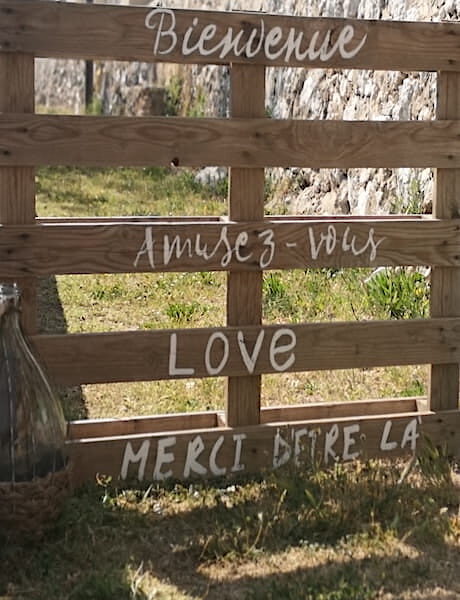 Bienvenue
Amusez-vous
Love
MERCI D'ETRE LÀ